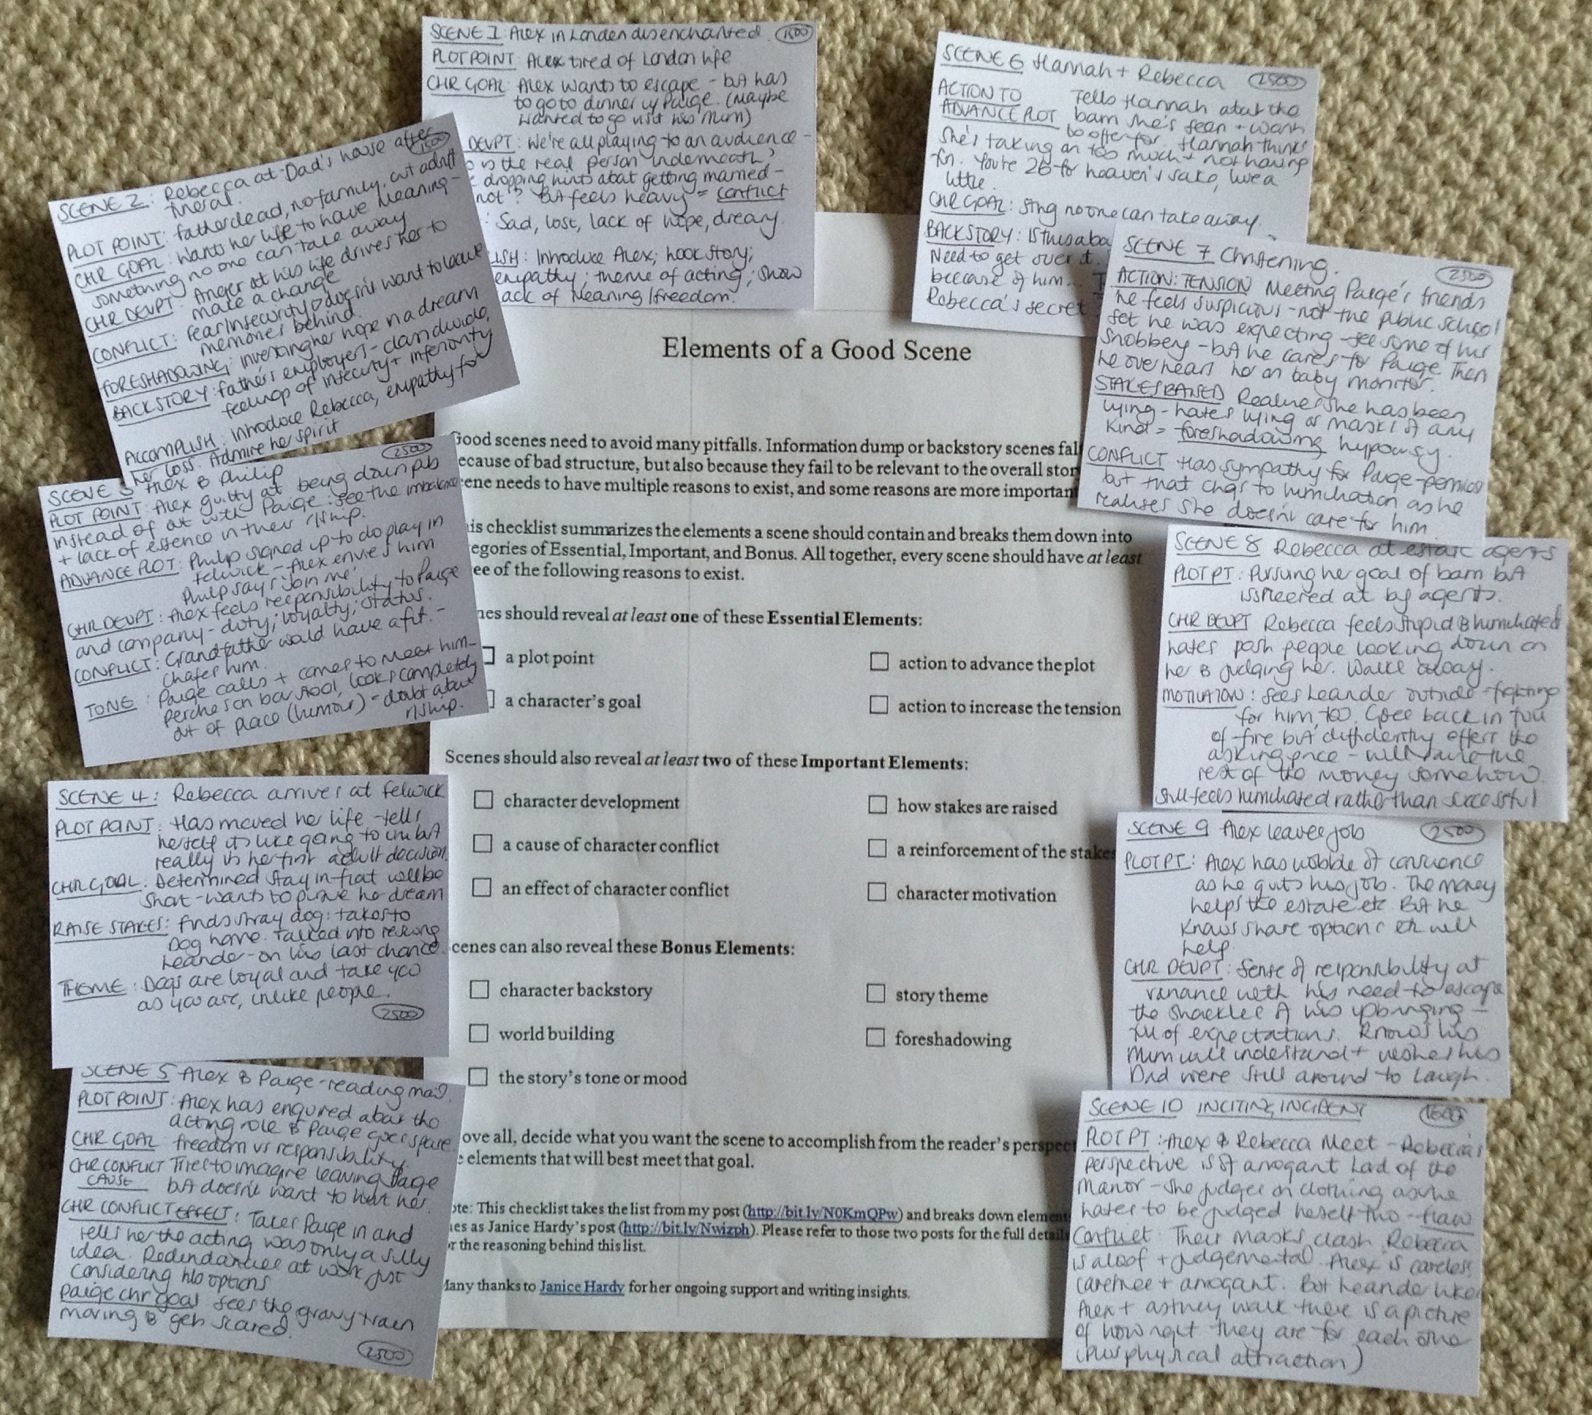 SCENE 1: Alex in London disenchanted. 1500
PLOT POINT: Alex tired of London life
CHR GOAL: Alex wants to escape - but has
to go to dinner w/ Paige. (Maybe
wanted to go visit his Mum)
DEVPT: We're all playing to an audience -
is the real person underneath?
dropping hints about getting married -
not? But feels heavy = conflict
: Sad, lost, lack of hope, dreary.
ISH: Introduce Alex; hook story;
empathy; theme of acting; show
lack of meaning/freedom.
SCENE 2: Rebecca at Dad's house after 1500
funeral.
PLOT POINT: father dead, no family, cut adrift
CHR GOAL: Wants her life to have meaning -
something no one can take away
CHR DEVPT: Anger at his life drives her to
make a change
CONFLICT: fear/insecurity & doesn't want to leave
memories behind.
FORESHADOWING: investing her hope in a dream
BACKSTORY: father's employers - class divide,
feelings of insecurity + inferiority
ACCOMPLISH: Introduce Rebecca, empathy for
her loss. Admire her spirit
SCENE 3 Alex & Philip 2500
PLOT POINT: Alex guilty at being down pub
instead of out with Paige: see the imbalance
+ lack of essence in their r/ship.
ADVANCE PLOT: Philip signed up to do play in
Felwick - Alex envies him
Philip says 'join me'
CHR DEVPT: Alex feels responsibility to Paige
and company - duty; loyalty; status.
CONFLICT: Grandfather would have a fit -
chafes him.
TONE: Paige calls + comes to meet him -
perches on bar stool, looks completely
out of place (humour) - doubt about
r/ship.
SCENE 4: Rebecca arrives at Felwick
PLOT POINT: Has moved her life - tells
herself its like going to uni but
really is her first adult decision.
CHR GOAL: Determined stay in flat will be
short - wants to pursue her dream
RAISE STAKES: finds stray dog: takes to
Dog home. Talked into rescuing
Leander - on his last chance.
THEME: Dogs are loyal and take you
as you are, unlike people.
2500
SCENE 5 Alex & Paige - reading mail.
PLOT POINT: Alex has enquired about the
acting role & Paige goes spare
CHR GOAL freedom vs responsibility
CHR CONFLICT Tries to imagine leaving Paige
CAUSE but doesn't want to hurt her.
CHR CONFLICT EFFECT: Takes Paige in and
tells her the acting was only a silly
idea. Redundancies at work just
considering his options
Paige chr goal sees the gravy train
moving & gets scared.
2500
SCENE 6 Hannah + Rebecca 2500
ACTION TO Tells Hannah about the
ADVANCE PLOT barn she's seen + wants
to offer for. Hannah thinks
she's taking on too much + not having
fun. You're 26 for heaven's sake, live a
little.
CHR GOAL: Sthg no one can take away.
BACKSTORY: Is this aba
Need to get over it.
because of him...
Rebecca's secret
SCENE 7 Christening. 2500
ACTION: TENSION Meeting Paige's friends
he feels suspicious - not the public school
set he was expecting - see some of his
snobbery - but he cares for Paige. Then
he overhears her on baby monitor.
STAKES RAISED Realises she has been
lying - hates lying or masks of any
kind = foreshadowing hypocrisy.
CONFLICT Has sympathy for Paige
but that chgs to humiliation as he
realises she doesn't care for him.
SCENE 8 Rebecca at estate agents
PLOT PT: Pursuing her goal of barn but
is sneered at by agents.
CHR DEVPT Rebecca feels stupid & humiliated
hates posh people looking down on
her & judging her. Walks away.
MOTIVATION: Sees Leander outside - fighting
for him, too. Goes back in full
of fire but diffidently offers the
asking price - will raise the
rest of the money somehow.
Still feels humiliated rather than successful
SCENE 9 Alex leaves job 2500
PLOT PT: Alex has wobble of conscience
as he quits his job. The money
helps the estate etc. But he
knows share options etc will
help.
CHR DEVPT: Sense of responsibility at
variance with his need to escape
the shackles of his upbringing -
full of expectations. Knows his
Mum will understand + wishes his
Dad were still around to laugh.
SCENE 10 INCITING INCIDENT
PLOT PT: Alex & Rebecca Meet - Rebecca's
perspective is of arrogant Lord of the
Manor - she judges on clothing as she
hates to be judged herself two - flaw
Conflict: Their masks clash. Rebecca
is aloof + judgemental. Alex is careless
carefree + arrogant. But Leander likes
Alex + as they walk there is a picture
of how right they are for each other
(plus physical attraction)
Elements of a Good Scene
Good scenes need to avoid many pitfalls. Information dump or backstory scenes fal
ecause of bad structure, but also because they fail to be relevant to the overall stor
ene needs to have multiple reasons to exist, and some reasons are more important
is checklist summarizes the elements a scene should contain and breaks them down into
egories of Essential, Important, and Bonus. All together, every scene should have at least
ee of the following reasons to exist.
nes should reveal at least one of these Essential Elements:
a plot point
action to advance the plot
a character's goal
action to increase the tension
Scenes should also reveal at least two of these Important Elements:
character development
how stakes are raised
a cause of character conflict
a reinforcement of the stakes
an effect of character conflict
character motivation
cenes can also reveal these Bonus Elements:
character backstory
story theme
world building
foreshadowing
the story's tone or mood
ove all, decide what you want the scene to accomplish from the reader's perspect
e elements that will best meet that goal.
ote: This checklist takes the list from my post (http://bit.ly/N0KmQPw) and breaks down element
es as Janice Hardy's post (http://bit.ly/Nwizph). Please refer to those two posts for the full details
or the reasoning behind this list.
Many thanks to Janice Hardy for her ongoing support and writing insights.